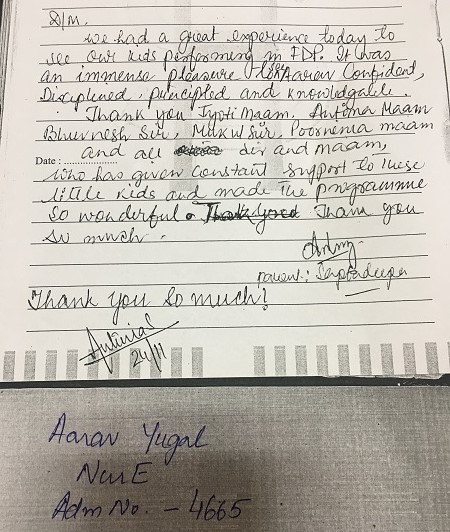 D/M.
we had a great experience today to
see our kids performing in FDP. It was
an immense pleasure to see Aarav Confident,
Disciplined, principled and knowledgable.
Thank you Jyoti Maam, Antima Maam
Bhuvnesh Sir, Mukul Sir, Poornema maam
and all sir and maam,
Date :
who has given constant support to these
little kids and made the programme
so wonderful. Thank you Thank you
so much.
parent: Saptadeepa
Thank you so much!
Antima
24/11
Aarav Yugal
Nur E
Adm No. - 4665